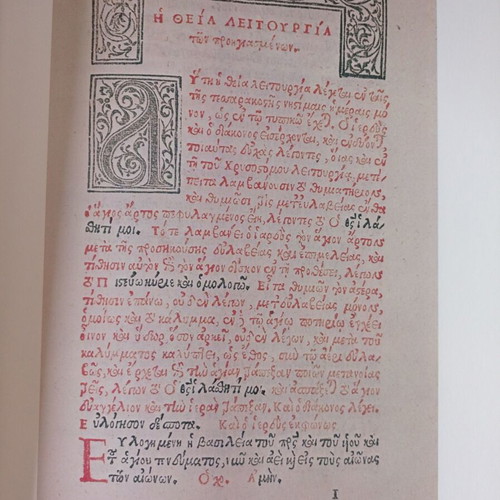 Η ΘΕΙΑ ΛΕΙΤΟΥΡΓΙΑ
τῶν προηγιασμένων.
Αὕτη ἡ θεία λειτουργία λέγεται ἐν ταῖς
τῆς τεσσαρακοστῆς νησίμαις ἡμέραις μό
νον, ὡς ἐν τῷ τυπικῷ ἔχει. Ὁ ἱερεὺς
καὶ ὁ διάκονος εἰσέρχονται, καὶ
τοιαύτας εὐχὰς λέγοντες, οἵας καὶ ἐν
τῇ τοῦ Χρυσοστόμου λειτουργίᾳ, μετέ
πειτα λαμβάνουσιν
καὶ θυμιῶσι μετ' εὐλαβείας
ὁ ἅγιος ἄρτος πεφυλαγμένος ἐστὶ, λέγοντες τὸ Ὁ Θεὸς ἱλά
σθητί μοι. Τότε λαμβάνει ὁ ἱερεὺς τὸν ἅγιον ἄρτον
μετὰ τῆς προσηκούσης εὐλαβείας καὶ ἐπιμελείας, καὶ
τίθησιν αὐτὸν εἰς τὸν ἅγιον δίσκον ἐν τῇ προθέσει, λέγων
τὸ Πιστεύω κύριε καὶ ὁμολογῶ. Εἶτα θυμιῶν τὸν ἀστέρα,
τίθησιν ἐπάνω, οὐδὲν λέγων, μετ' εὐλαβείας μόνον,
ὁμοίως καὶ τὸ κάλυμμα, ἐν τῷ ἁγίῳ ποτηρίῳ ἐγχέει
οἶνον, καὶ ὕδωρ ὅσον ἀρκεῖ, οὐδὲν λέγων, καὶ μετὰ τοῦ
καλύμματος καλύπτει, ὡς ἔθος, σὺν τῷ ἀέρι εὐλα
βῶς, καὶ ἔρχεται εἰς τὴν ἁγίαν τράπεζαν ποιῶν μετανοίας
τρεῖς, λέγων τὸ Ὁ Θεὸς ἱλάσθητί μοι. καὶ ἀσπάζεται τὸ ἅγιον
εὐαγγέλιον καὶ τὴν ἱερὰν τράπεζαν. Καὶ ὁ διάκονος λέγει.
Εὐλόγησον δέσποτα. Καὶ ὁ ἱερεὺς ἐκφώνως.
Εὐλογημένη ἡ βασιλεία τοῦ πρς καὶ τοῦ υἱοῦ καὶ
τοῦ ἁγίου πνεύματος, νῦν καὶ ἀεὶ καὶ εἰς τοὺς αἰῶνας
τῶν αἰώνων. Ὁ χο. Ἀμήν.
I